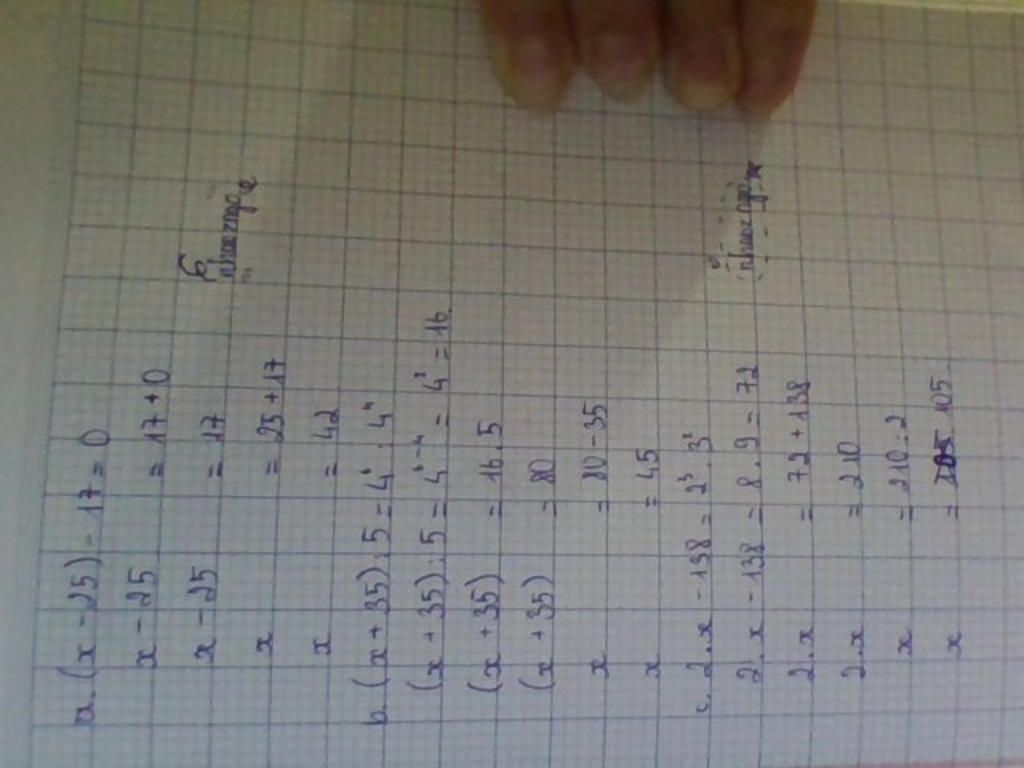 a. (x - 25) - 17 = 0
x - 25 = 17 + 0
x - 25 = 17
x = 25 + 17
x = 42
b. (x + 35) : 5 = 4⁶ : 4⁴
(x + 35) : 5 = 4⁶⁻⁴ = 4² = 16
(x + 35) = 16 . 5
(x + 35) = 80
x = 80 - 35
x = 45
c. 2.x - 138 = 2³ . 3²
2.x - 138 = 8 . 9 = 72
2.x = 72 + 138
2.x = 210
x = 210 : 2
x = 105